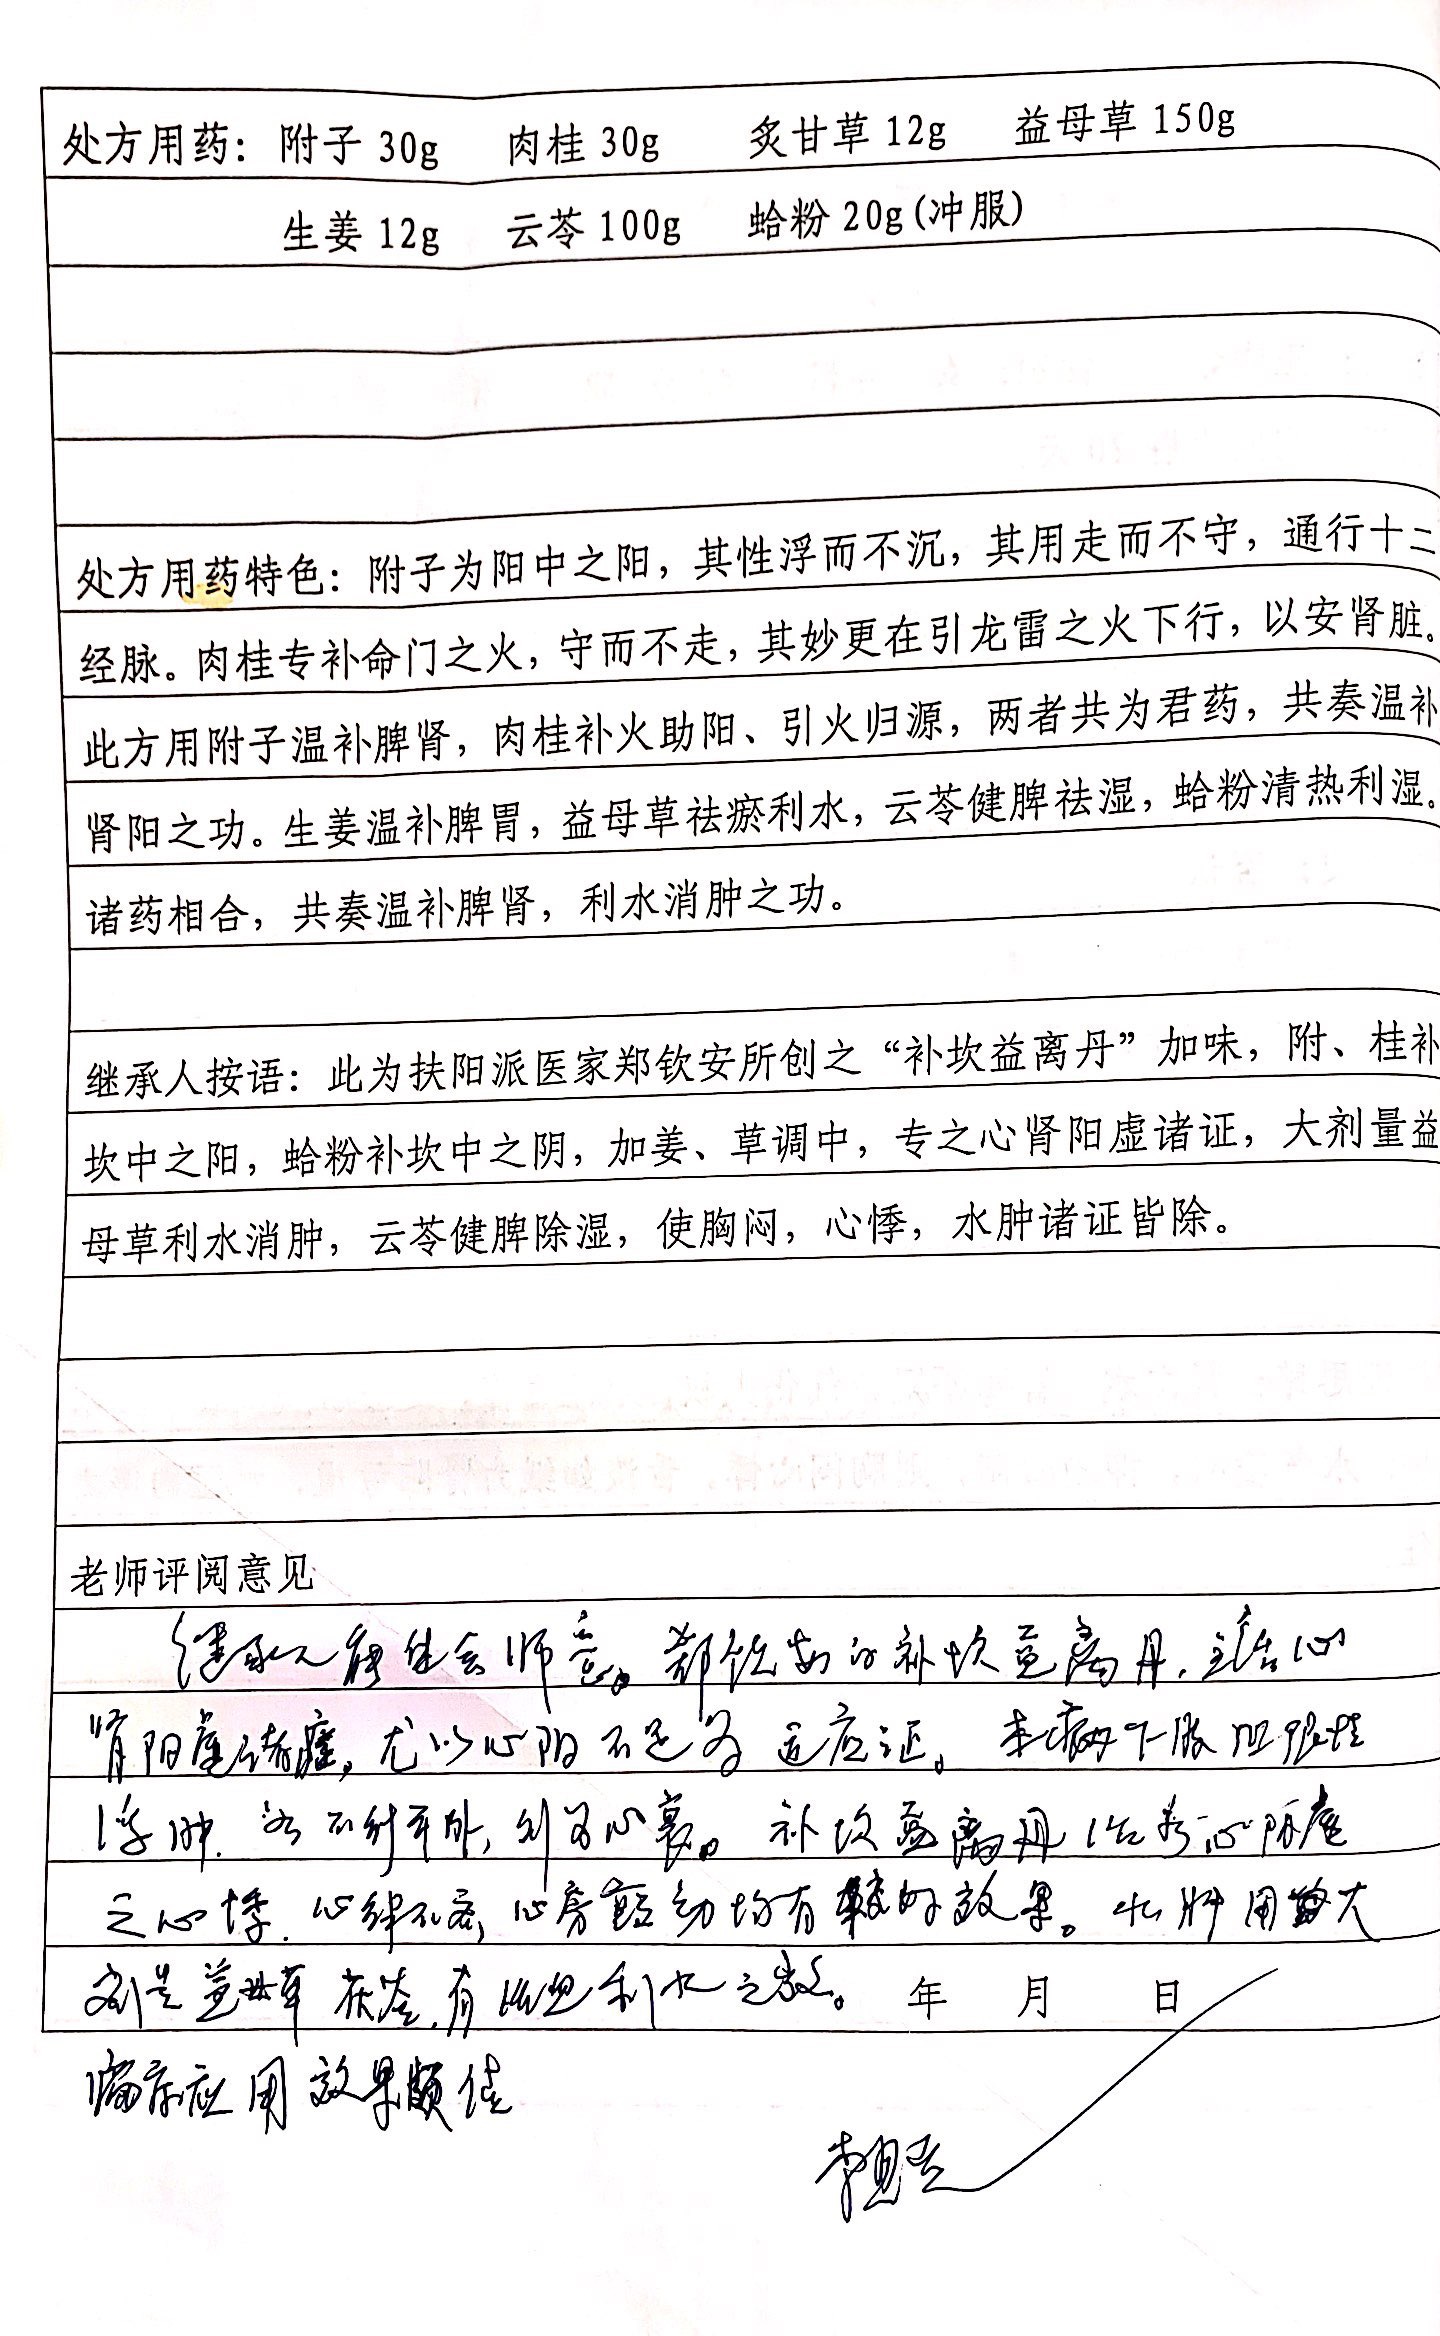 处方用药：附子 30g 肉桂 30g 炙甘草 12g 益母草 150g
生姜 12g 云苓 100g 蛤粉 20g(冲服)
处方用药特色：附子为阳中之阳，其性浮而不沉，其用走而不守，通行十二
经脉。肉桂专补命门之火，守而不走，其妙更在引龙雷之火下行，以安肾脏。
此方用附子温补脾肾，肉桂补火助阳、引火归源，两者共为君药，共奏温补
肾阳之功。生姜温补脾胃，益母草祛瘀利水，云苓健脾祛湿，蛤粉清热利湿。
诸药相合，共奏温补脾肾，利水消肿之功。
继承人按语：此为扶阳派医家郑钦安所创之“补坎益离丹”加味，附、桂补
坎中之阳，蛤粉补坎中之阴，加姜、草调中，专之心肾阳虚诸证，大剂量益
母草利水消肿，云苓健脾除湿，使胸闷，心悸，水肿诸证皆除。
老师评阅意见
继承人能体会师意。郑钦安的补坎益离丹，主治心
肾阳虚诸症，尤以心阳不足为适应证。本病双下肢凹陷性
浮肿，为心衰。补坎益离丹治疗心阳虚
之心悸，心律不齐，心房颤动均有较好效果。水肿用大
剂量益母草茯苓，有活血利水之效。 年 月 日
临床应用效果颇佳